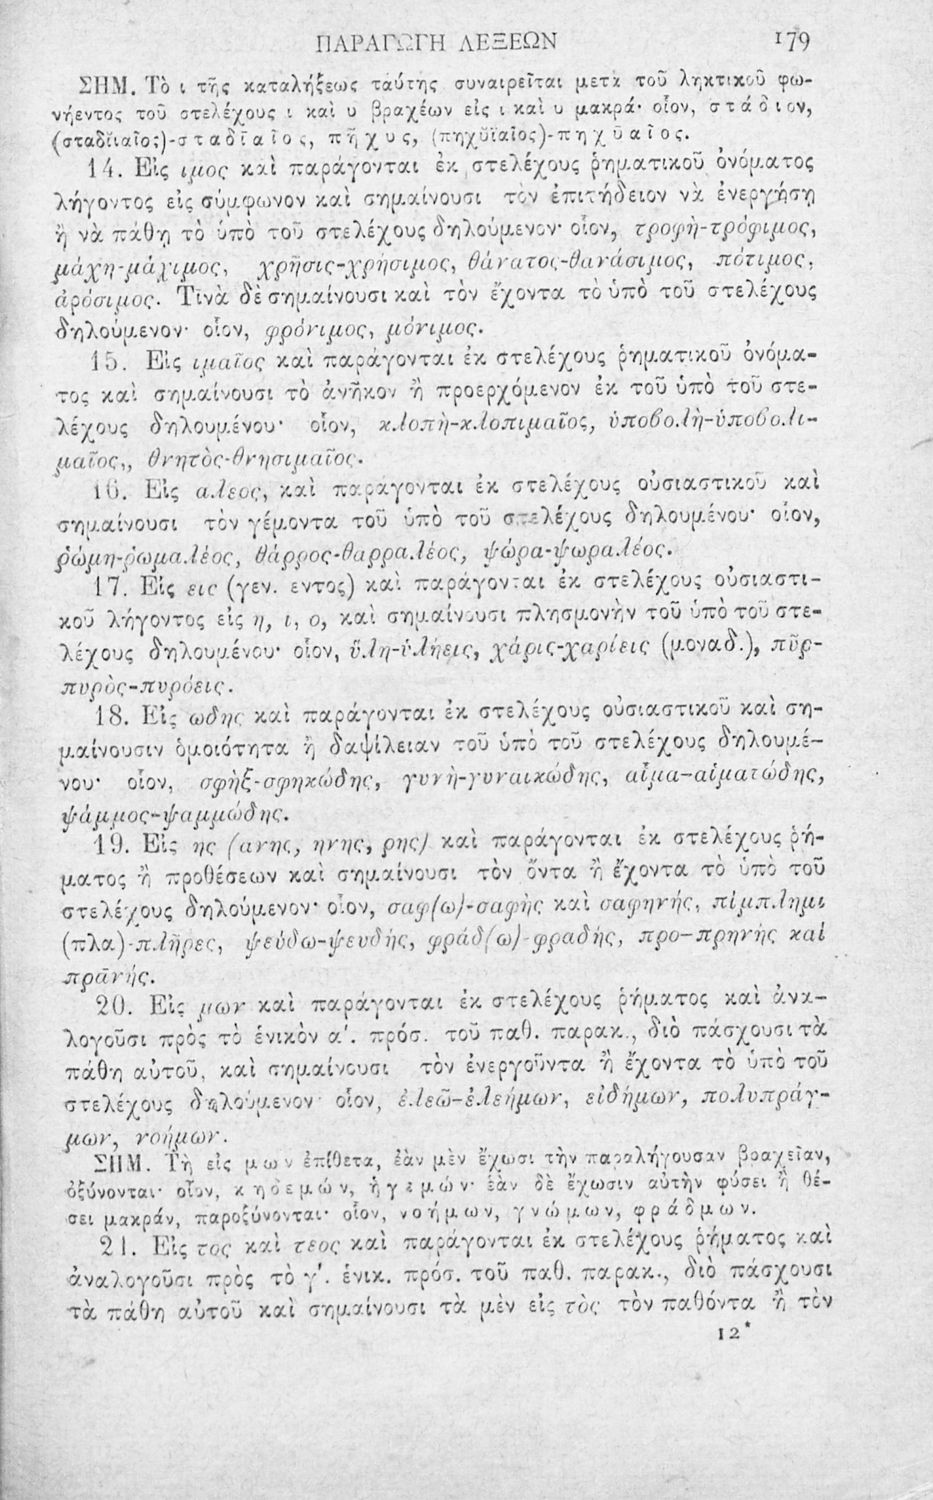 ΠΑΡΑΓΩΓΗ ΛΕΞΕΩΝ 179
ΣΗΜ. Τὸ ι τῆς καταλήξεως ταύτης συναιρεῖται μετὰ τοῦ ληκτικοῦ φω-
νήεντος τοῦ στελέχους ι καὶ υ βραχέων εἰς ι καὶ υ μακρά· οἷον, στάδιον,
(σταδῐιαῖος)-σταδῑαῖος, πῆχυς, (πηχῠϊαῖος)-πηχῡαῖος.
14. Εἰς ιμος καὶ παράγονται ἐκ στελέχους ῥηματικοῦ ὀνόματος
λήγοντος εἰς σύμφωνον καὶ σημαίνουσι τὸν ἐπιτήδειον νὰ ἐνεργήσῃ
ἢ νὰ πάθῃ τὸ ὑπὸ τοῦ στελέχους δηλούμενον· οἷον, τροφὴ-τρόφιμος,
μάχη-μάχιμος, χρῆσις-χρήσιμος, θάνατος-θανάσιμος, πότιμος,
ἀρόσιμος. Τινὰ δὲ σημαίνουσι καὶ τὸν ἔχοντα τὸ ὑπὸ τοῦ στελέχους
δηλούμενον· οἷον, φρόνιμος, μόνιμος.
15. Εἰς ιμαῖος καὶ παράγονται ἐκ στελέχους ῥηματικοῦ ὀνόμα-
τος καὶ σημαίνουσι τὸ ἀνῆκον ἢ προερχόμενον ἐκ τοῦ ὑπὸ τοῦ στε-
λέχους δηλουμένου· οἷον, κλοπὴ-κλοπιμαῖος, ὑποβολὴ-ὑποβολι-
μαῖος,, θνητὸς-θνησιμαῖος.
16. Εἰς αλεος, καὶ παράγονται ἐκ στελέχους οὐσιαστικοῦ καὶ
σημαίνουσι τὸν γέμοντα τοῦ ὑπὸ τοῦ στελέχους δηλουμένου· οἷον,
ῥώμη-ῥωμαλέος, θάρρος-θαρραλέος, ψώρα-ψωραλέος.
17. Εἰς εις (γεν. εντος) καὶ παράγονται ἐκ στελέχους οὐσιαστι-
κοῦ λήγοντος εἰς η, ι, ο, καὶ σημαίνουσι πλησμονὴν τοῦ ὑπὸ τοῦ στε-
λέχους δηλουμένου· οἷον, ὕλη-ὑλήεις, χάρις-χαρίεις (μοναδ.), πῦρ-
πυρὸς-πυρόεις.
18. Εἰς ωδης καὶ παράγονται ἐκ στελέχους οὐσιαστικοῦ καὶ ση-
μαίνουσιν ὁμοιότητα ἢ δαψίλειαν τοῦ ὑπὸ τοῦ στελέχους δηλουμέ-
νου· οἷον, σφὴξ-σφηκώδης, γυνὴ-γυναικώδης, αἷμα-αἱματώδης,
ψάμμος-ψαμμώδης.
19. Εἰς ης (ανης, ηνης, ρης) καὶ παράγονται ἐκ στελέχους ῥή-
ματος ἢ προθέσεων καὶ σημαίνουσι τὸν ὄντα ἢ ἔχοντα τὸ ὑπὸ τοῦ
στελέχους δηλούμενον· οἷον, σαφ(ω)-σαφὴς καὶ σαφηνής, πίμπλημι
(πλα)-πλῆρες, ψεύδω-ψευδής, φράδ(ω)-φραδής, προ-πρηνὴς καὶ
πρᾱνής.
20. Εἰς μων καὶ παράγονται ἐκ στελέχους ῥήματος καὶ ἀνα-
λογοῦσι πρὸς τὸ ἑνικὸν α'. πρόσ. τοῦ παθ. παρακ., διὸ πάσχουσι τὰ
πάθη αὐτοῦ, καὶ σημαίνουσι τὸν ἐνεργοῦντα ἢ ἔχοντα τὸ ὑπὸ τοῦ
στελέχους δηλούμενον· οἷον, ἐλεῶ-ἐλεήμων, εἰδήμων, πολυπράγ-
μων, νοήμων.
ΣΗΜ. Τὴ εἰς μων ἐπίθετα, ἐὰν μὲν ἔχωσι τὴν παραλήγουσαν βραχεῖαν,
ὀξύνονται· οἷον, κηδεμών, ἡγεμών· ἐὰν δὲ ἔχωσιν αὐτὴν φύσει ἢ θέ-
σει μακράν, παροξύνονται· οἷον, νοήμων, γνώμων, φράδμων.
21. Εἰς τος καὶ τεος καὶ παράγονται ἐκ στελέχους ῥήματος καὶ
ἀναλογοῦσι πρὸς τὸ γ'. ἑνικ. πρόσ. τοῦ παθ. παρακ., διὸ πάσχουσι
τὰ πάθη αὐτοῦ καὶ σημαίνουσι τὰ μὲν εἰς τὸς τὸν παθόντα ἢ τὸν
12*